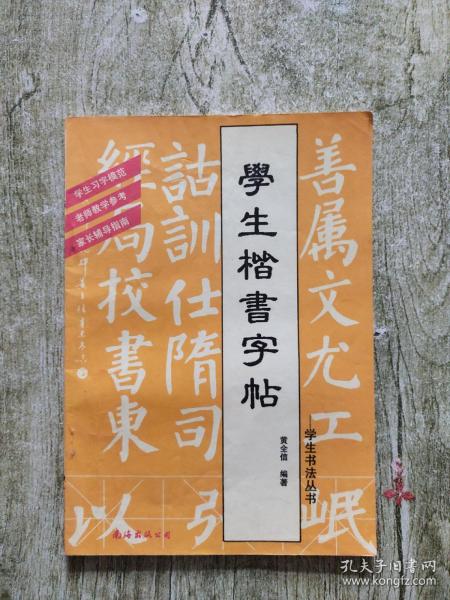 學生楷書字帖
黄全信 编著
学生书法丛书
学生习字模范
老师教学参考
家长辅导指南
善属文尤工
詁訓仕隋司
經局校書東
岷
引
以
南海出版公司
孔夫子旧书网
www.kongfz.com